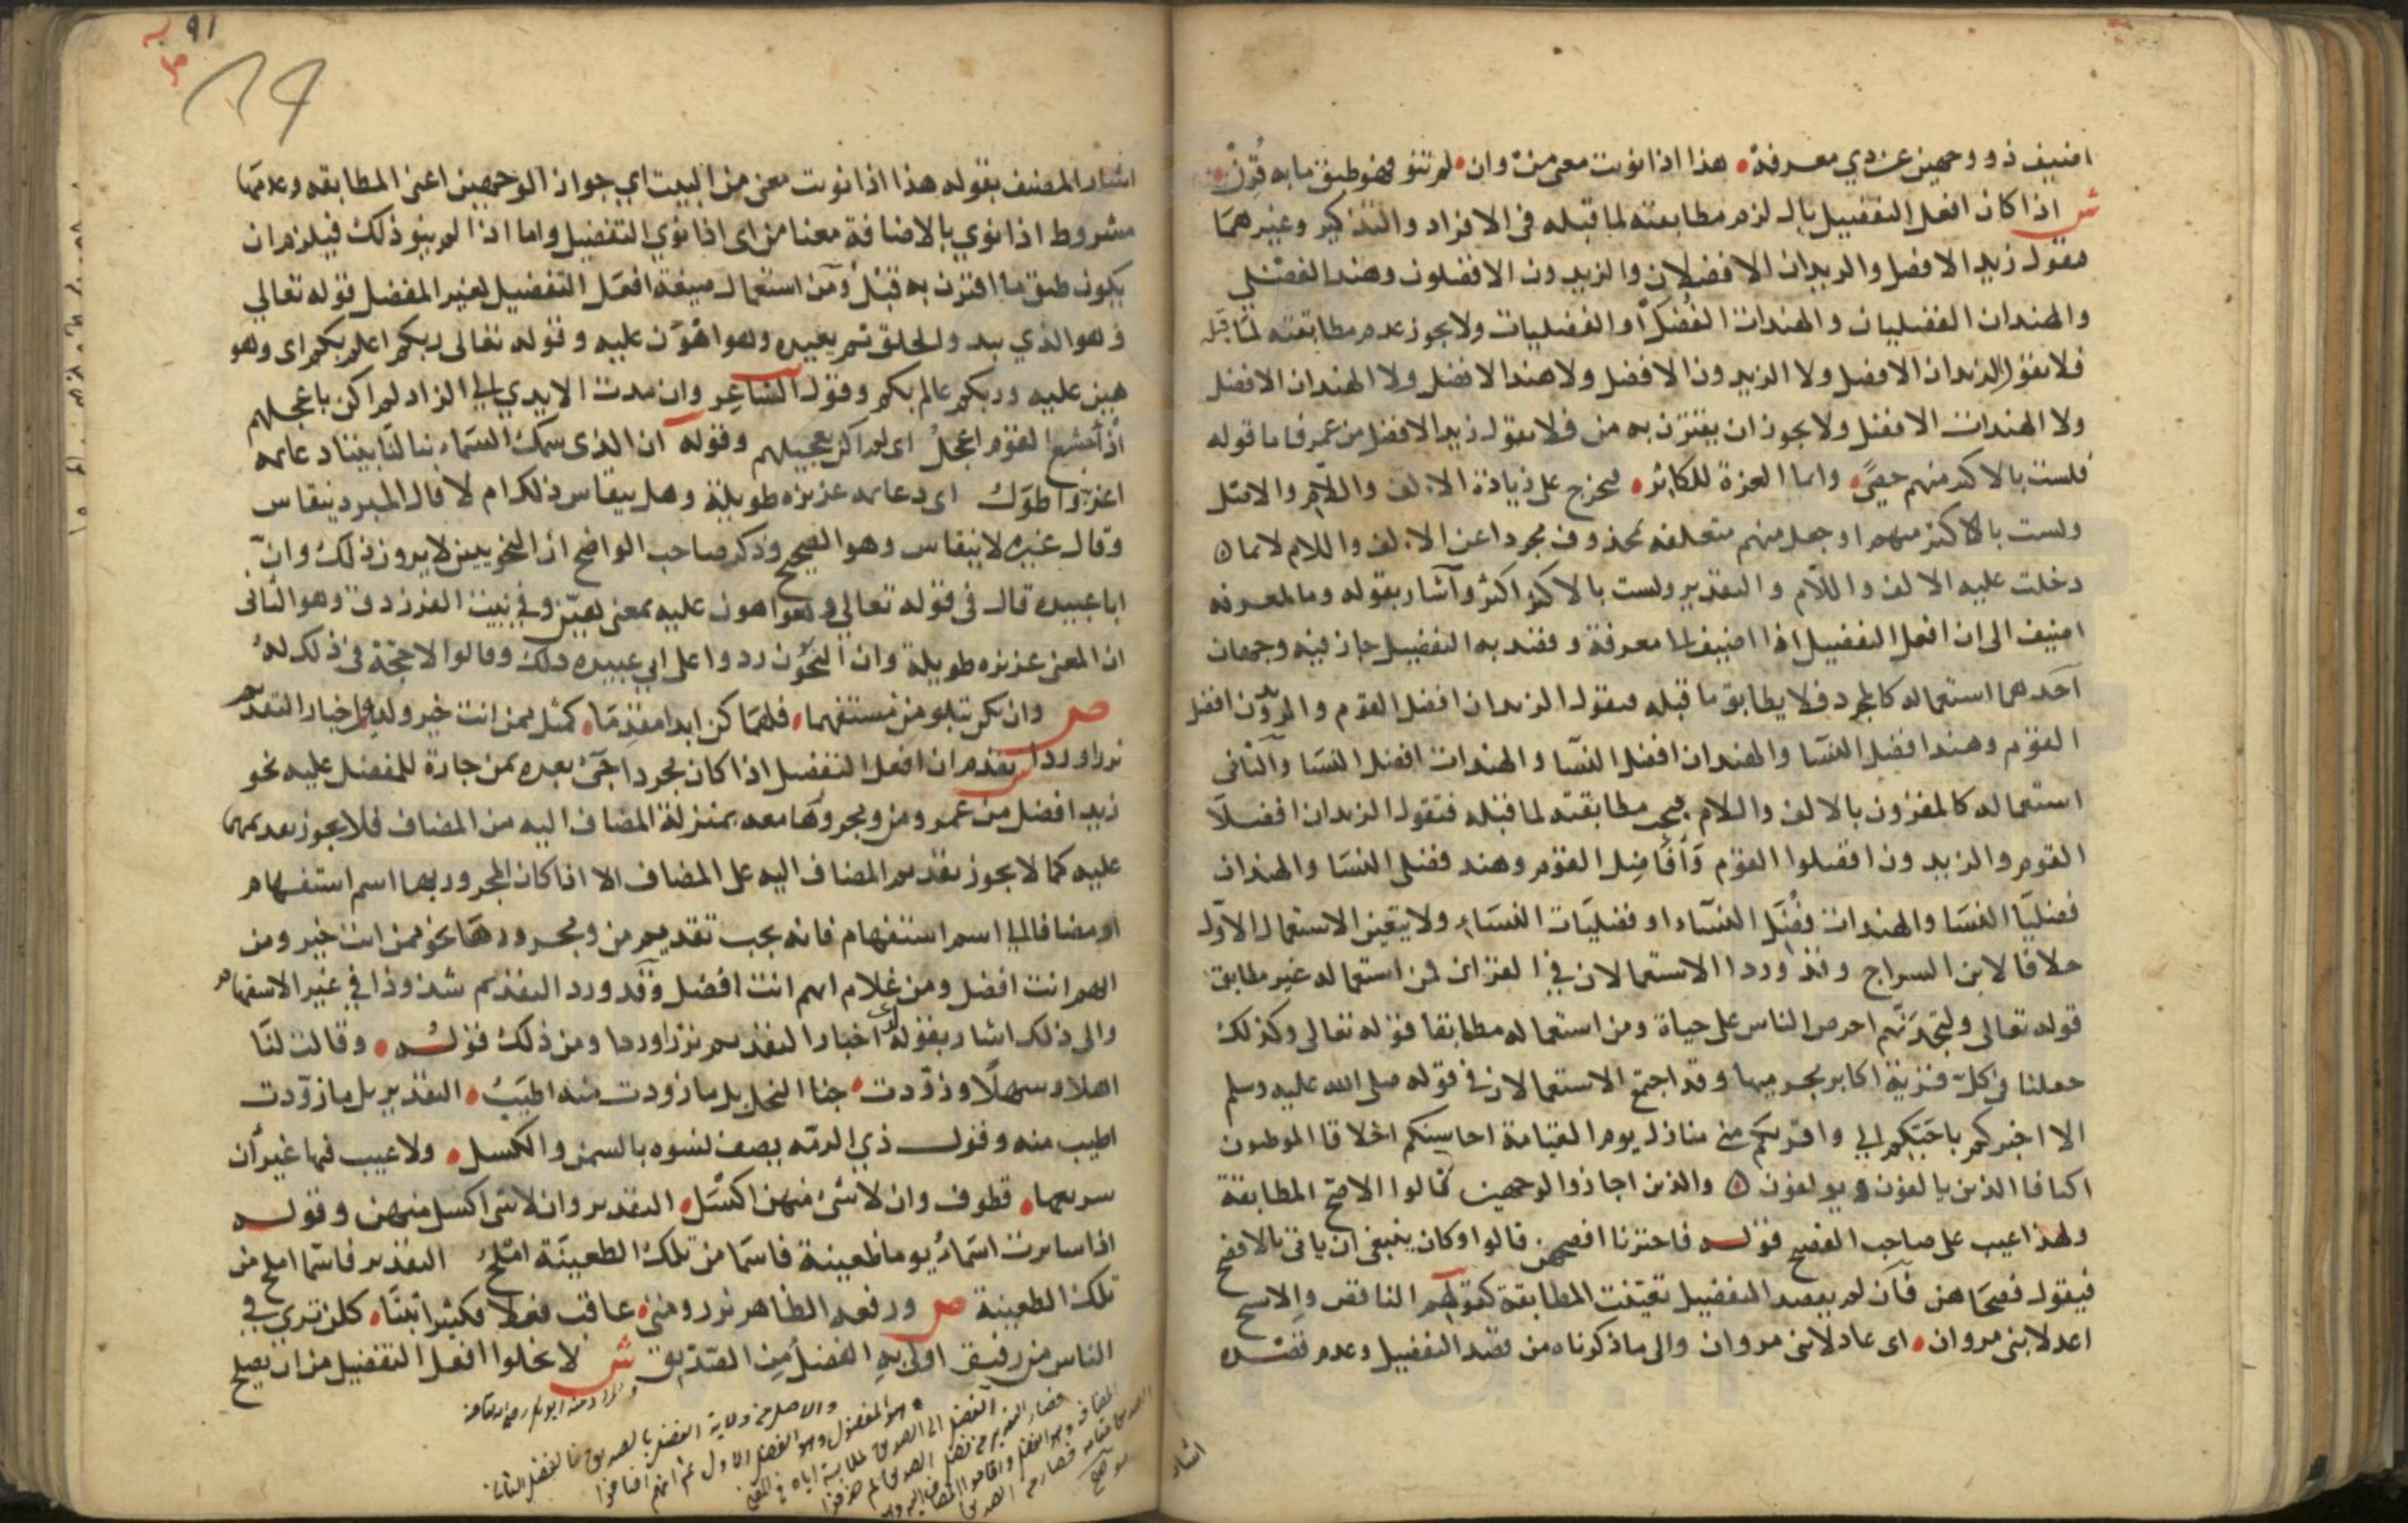 اضيف ذو وجهين عن ذي معرفة هذا اذا نويت معنى من وان لم تنو فهو طبق ما به قرن
ش اذا كان افعل التفضيل بال لزم مطابقته لما قبله في الافراد والتذكير وغيرهما
فتقول زيد الافضل والزيدان الافضلان والزيدون الافضلون وهند الفضلي
والهندان الفضليان والهندات الفضل او الفضليات ولا يجوز عدم مطابقته لما قبله
فلا تقول الزيدان الافضل ولا الزيدون الافضل ولا هند الافضل ولا الهندان الافضل
ولا الهندات الافضل ولا يجوز ان يقترن به من فلا تقول زيد الافضل من عمرو فاما قوله
فلست بالاكثر منهم حصى وانما العزة للكاثر فيخرج على زيادة الالف واللام والاصل
ولست باكثر منهم او جعل منهم متعلقه بمحذوف مجردا عن الالف واللام لا بما
دخلت عليه الالف واللام والتقدير ولست بالاكثر اكثر واشار بقوله وما لمعرفه
اضيف الى ان افعل التفضيل اذا اضيف لما معرفة وقصد به التفضيل جاز فيه وجهان
احدهما استعماله كالمجرد فلا يطابق ما قبله فتقول الزيدان افضل القوم والزيدون افضل
القوم وهند افضل النسا والهندان افضل النسا والهندات افضل النسا والثاني
استعماله كالمقرون بالالف واللام فيجب مطابقته لما قبله فتقول الزيدان افضلا
القوم والزيدون افضلوا القوم وافاضل القوم وهند فضلى النسا والهندان
فضليا النسا والهندات فضل النساء او فضليات النساء ولا يتعين الاستعمال الاول
خلافا لابن السراج وقد ورد الاستعمالان في القران فمن استعماله غير مطابق
قوله تعالى ولتجدنهم احرص الناس على حياة ومن استعماله مطابقا قوله تعالى وكذلك
جعلنا في كل قرية اكابر مجرميها وقد اجتمع الاستعمالان في قوله صلى الله عليه وسلم
الا اخبركم باحبكم الي واقربكم مني منازل يوم القيامة احاسنكم اخلاقا الموطون
اكنافا الذين يالفون ويولفون والذين اجازوا الوجهين قالوا الافصح المطابقة
ولهذا عيب على صاحب الفصيح قوله فاخترنا افصحهن قالوا وكان ينبغي ان ياتي بالافصح
فيقول فصحاهن فان لم يقصد التفضيل تعينت المطابقة كقولهم الناقص والاشج
اعدلا بني مروان اى عادلا بني مروان والى ما ذكرناه من قصد التفضيل وعدم قصده
اشار
91
اشار المصنف بقوله هذا اذا نويت معنى من البيت اي جواز الوجهين اعني المطابقه وعدمها
مشروط اذا نوي بالاضافة معنا من اى اذا نوي التفضيل واما اذا لم ينو ذلك فيلزم ان
يكون طبق ما اقترن به قبل ومن استعمال صيغة افعل التفضيل لغير المفضل قوله تعالي
وهو الذي يبد والخلق ثم يعيده وهو اهون عليه وقوله تعالى ربكم اعلم بكم اى وهو
هين عليه وربكم عالم بكم وقول الشاعر وان مدت الايدي الى الزاد لم اكن باعجلهم
اذ اجشع القوم اعجل اى لم اكن بعجيلهم وقوله ان الذى سمك السماء بنا لنا بيتا دعايمه
اعز واطول اى دعايمه عزيزه طويلة وهل ينقاس ذلك ام لا قال المبرد ينقاس
وقال غيره لا ينقاس وهو الصحيح وذكر صاحب الواضح ان النحويين لا يرون ذلك وان
ابا عبيده قال في قوله تعالي وهو اهون عليه بمعنى هين وفي بيت الفرزدق وهو الثانى
ان المعنى عزيزه طويلة وان النحون ردوا على ابي عبيده ذلك وقالوا لا حجة في ذلك له
ص وان تكن بتلو من مستفهما فلهما كن ابدا مقدما كمثل ممن انت خير ولدى اخبار التقديم
نزرا وردا ش تقدم ان افعل التفضيل اذا كان مجردا جئ بعده بمن جارة للمفضل عليه نحو
زيد افضل من عمرو ومن ومجرورها معه بمنزلة المضاف اليه من المضاف فلا يجوز تقديمها
عليه كما لا يجوز تقديم المضاف اليه على المضاف الا اذا كان المجرور بها اسم استفهام
او مضافا الي اسم استفهام فانه يجب تقديم من ومجرورها نحو ممن انت خير ومن
ايهم انت افضل ومن غلام ايهم انت افضل وقد ورد التقديم شذوذا في غير الاستفهام
والى ذلك اشار بقوله لدى اخبار التقديم نزرا وردا ومن ذلك قوله وقالت لنا
اهلا وسهلا وزودت جنا النحل بل ما زودت منه اطيب التقدير بل ما زودت
اطيب منه وقول ذي الرمه يصف نسوه بالسمن والكسل ولا عيب فيها غير ان
سريعها قطوف وان لا شئ منهن اكسل التقدير وان لا شئ اكسل منهن وقوله
اذا سايرت اسماء يوما ظعينة فاسما من تلك الظعينة املح التقدير فاسما املح من
تلك الظعينة ص ورفعه الظاهر نزر ومتى عاقب فعلا فكثيرا ثبتا كلن ترى في
الناس من رفيق اولى به الفضل من الصديق ش لا يخلوا افعل التفضيل من ان يصلح
والمراد منه ابو بكر رضي الله عنه
والاصل من ولاية الفضل بالصديق فالفضل الثاني
هو المفضول وهو الفضل الاول ثم انهم اضافوا
الفضل الى الصديق لملابسة اياه في المعنى